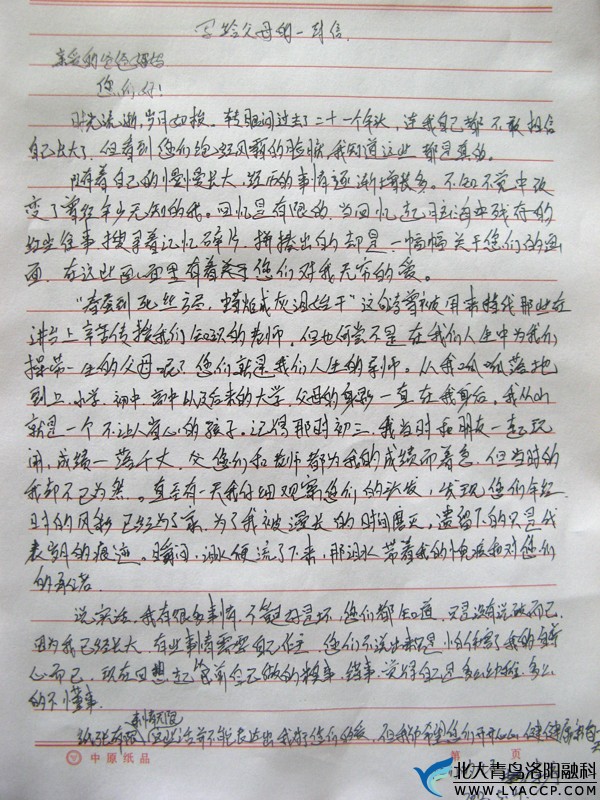 写给父母的一封信
亲爱的爸爸妈妈
您们好!
时光流逝,岁月如梭。转眼间过去了二十一个年头,连我自己都不敢相信
自己长大了,但看到您们饱经风霜的脸庞,我知道这些都是真的。
随着自己的慢慢长大,经历的事情逐渐增长多。不知不觉中改
变了曾经年少无知的我。回忆是有限的,当回忆起脑海中残存的
些往事搜寻着记忆碎片,拼凑出的却是一幅幅关于您们的画
面,在这些画面里有着关于您们对我无常的爱。
"春蚕到死丝方尽,蜡炬成灰泪始干"这句诗曾被用来替代那些在
讲台上辛苦传授我们知识的老师,但也何尝不是在我们人生中为我们
操劳一生的父母呢?您们就是我们人生的导师。从我呱呱落地
到上小学、初中、高中以及后来的大学,父母的身影一直在我身后。我从小
就是一个不让人省心的孩子。记得那时初三,我当时和朋友一起玩
闹,成绩一落千丈,父您们和老师都为我的成绩而着急,但当时的
我却不已为然。直至有一天我仔细观察您们的头发,发现您们年轻
时的风彩已经为了家,为了我被漫长的时间磨灭,遗留下的只是代
表岁月的痕迹。瞬间,泪水便流了下来,那泪水带着我的和对您们
的承诺。
说实话,我有很多事情,不管好是坏,您们都知道,只是没有说破而已,
因为我已经长大,有些事情需要自己作主,您们不说出来只是怕伤害了我的自尊
心而已,现在回想起以前自己做的糗事、错事,觉得自己是多么幼稚,多么
的不懂事。
纸张有限,亲情无限,这些话并不能表达出我对您们的爱,但我希望您们开开心心健健康康
中原纸品
第 页
北大青鸟洛阳融科
WWW.LYACCP.COM